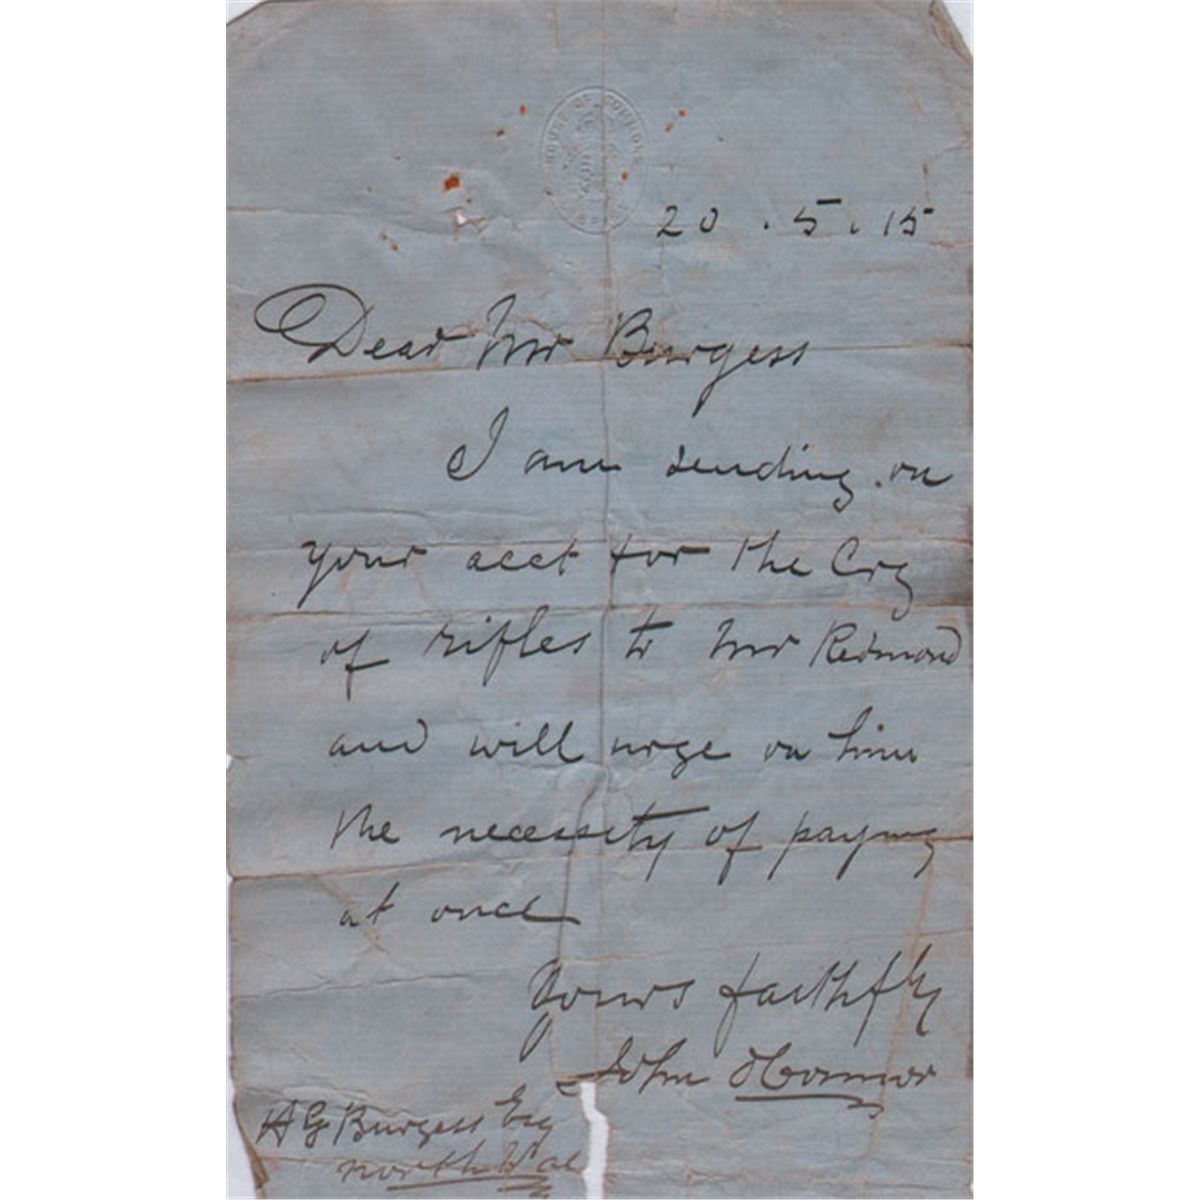 HOUSE OF COMMONS
20 . 5 . 15
Dear Mr Burgess
I am sending on
your acct for the Crg
of rifles to Mr Redmond
and will urge on him
the necessity of paying
at once
Yours faithfly
John O'Connor
H G Burgess Esq
North Wal